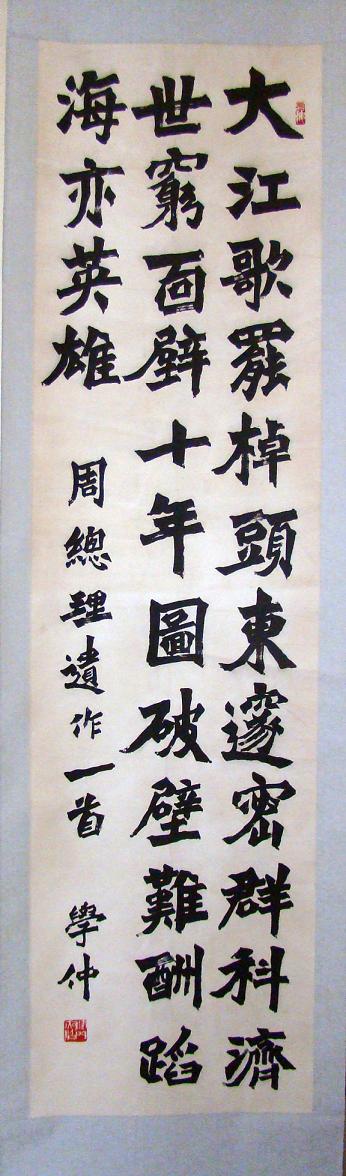 大江歌罷棹頭東邃密群科濟
世窮面壁十年圖破壁難酬蹈
海亦英雄
周總理遺作一首
學仲